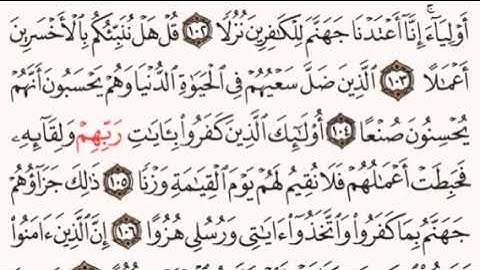 أَوْلِيَآءَ ۚ إِنَّآ أَعْتَدْنَا جَهَنَّمَ لِلْكَٰفِرِينَ نُزُلًا ١٠٢ قُلْ هَلْ نُنَبِّئُكُم بِٱلْأَخْسَرِينَ
أَعْمَٰلًا ١٠٣ ٱلَّذِينَ ضَلَّ سَعْيُهُمْ فِى ٱلْحَيَوٰةِ ٱلدُّنْيَا وَهُمْ يَحْسَبُونَ أَنَّهُمْ
يُحْسِنُونَ صُنْعًا ١٠٤ أُو۟لَٰٓئِكَ ٱلَّذِينَ كَفَرُوا۟ بِـَٔايَٰتِ رَبِّهِمْ وَلِقَآئِهِۦ
فَحَبِطَتْ أَعْمَٰلُهُمْ فَلَا نُقِيمُ لَهُمْ يَوْمَ ٱلْقِيَٰمَةِ وَزْنًا ١٠٥ ذَٰلِكَ جَزَآؤُهُمْ
جَهَنَّمُ بِمَا كَفَرُوا۟ وَٱتَّخَذُوٓا۟ ءَايَٰتِى وَرُسُلِى هُزُوًا ١٠٦ إِنَّ ٱلَّذِينَ ءَامَنُوا۟